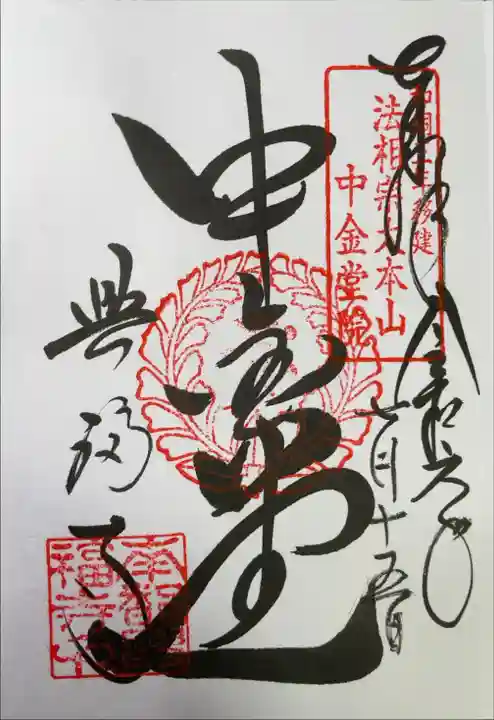 奉拝 令和六年
七月十五日
和銅三年移建
法相宗大本山
中金堂院
中金堂
興福寺